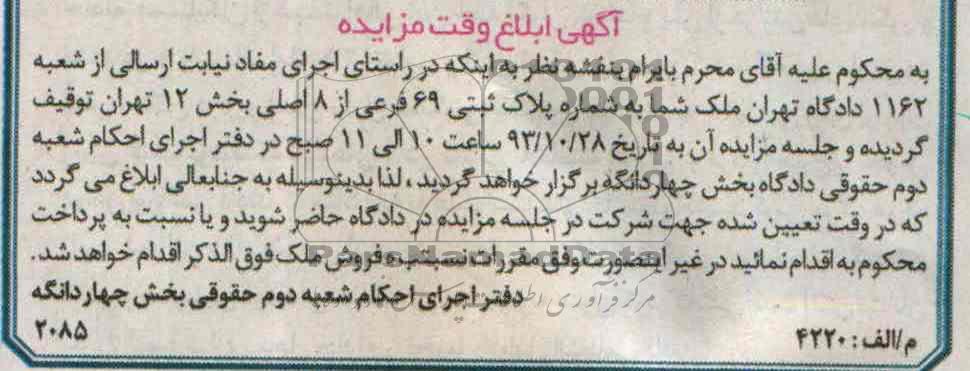 آگهی ابلاغ وقت مزایده
به محکوم علیه آقای محرم بایرام بنفشه نظر به اینکه در راستای اجرای مفاد نیابت ارسالی از شعبه
۱۱۶۲ دادگاه تهران ملک شما به شماره پلاک ثبتی ۶۹ فرعی از ۸ اصلی بخش ۱۲ تهران توقیف
گردیده و جلسه مزایده آن به تاریخ ۹۳/۱۰/۲۸ ساعت ۱۰ الی ۱۱ صبح در دفتر اجرای احکام شعبه
دوم حقوقی دادگاه بخش چهاردانگه برگزار خواهد گردید ، لذا بدینوسیله به جنابعالی ابلاغ می گردد
که در وقت تعیین شده جهت شرکت در جلسه مزایده در دادگاه حاضر شوید و یا نسبت به پرداخت
محکوم به اقدام نمائید در غیر اینصورت وفق مقررات نسبت به فروش ملک فوق الذکر اقدام خواهد شد.
دفتر اجرای احکام شعبه دوم حقوقی بخش چهاردانگه
م/الف : ۴۲۲۰
۲۰۸۵